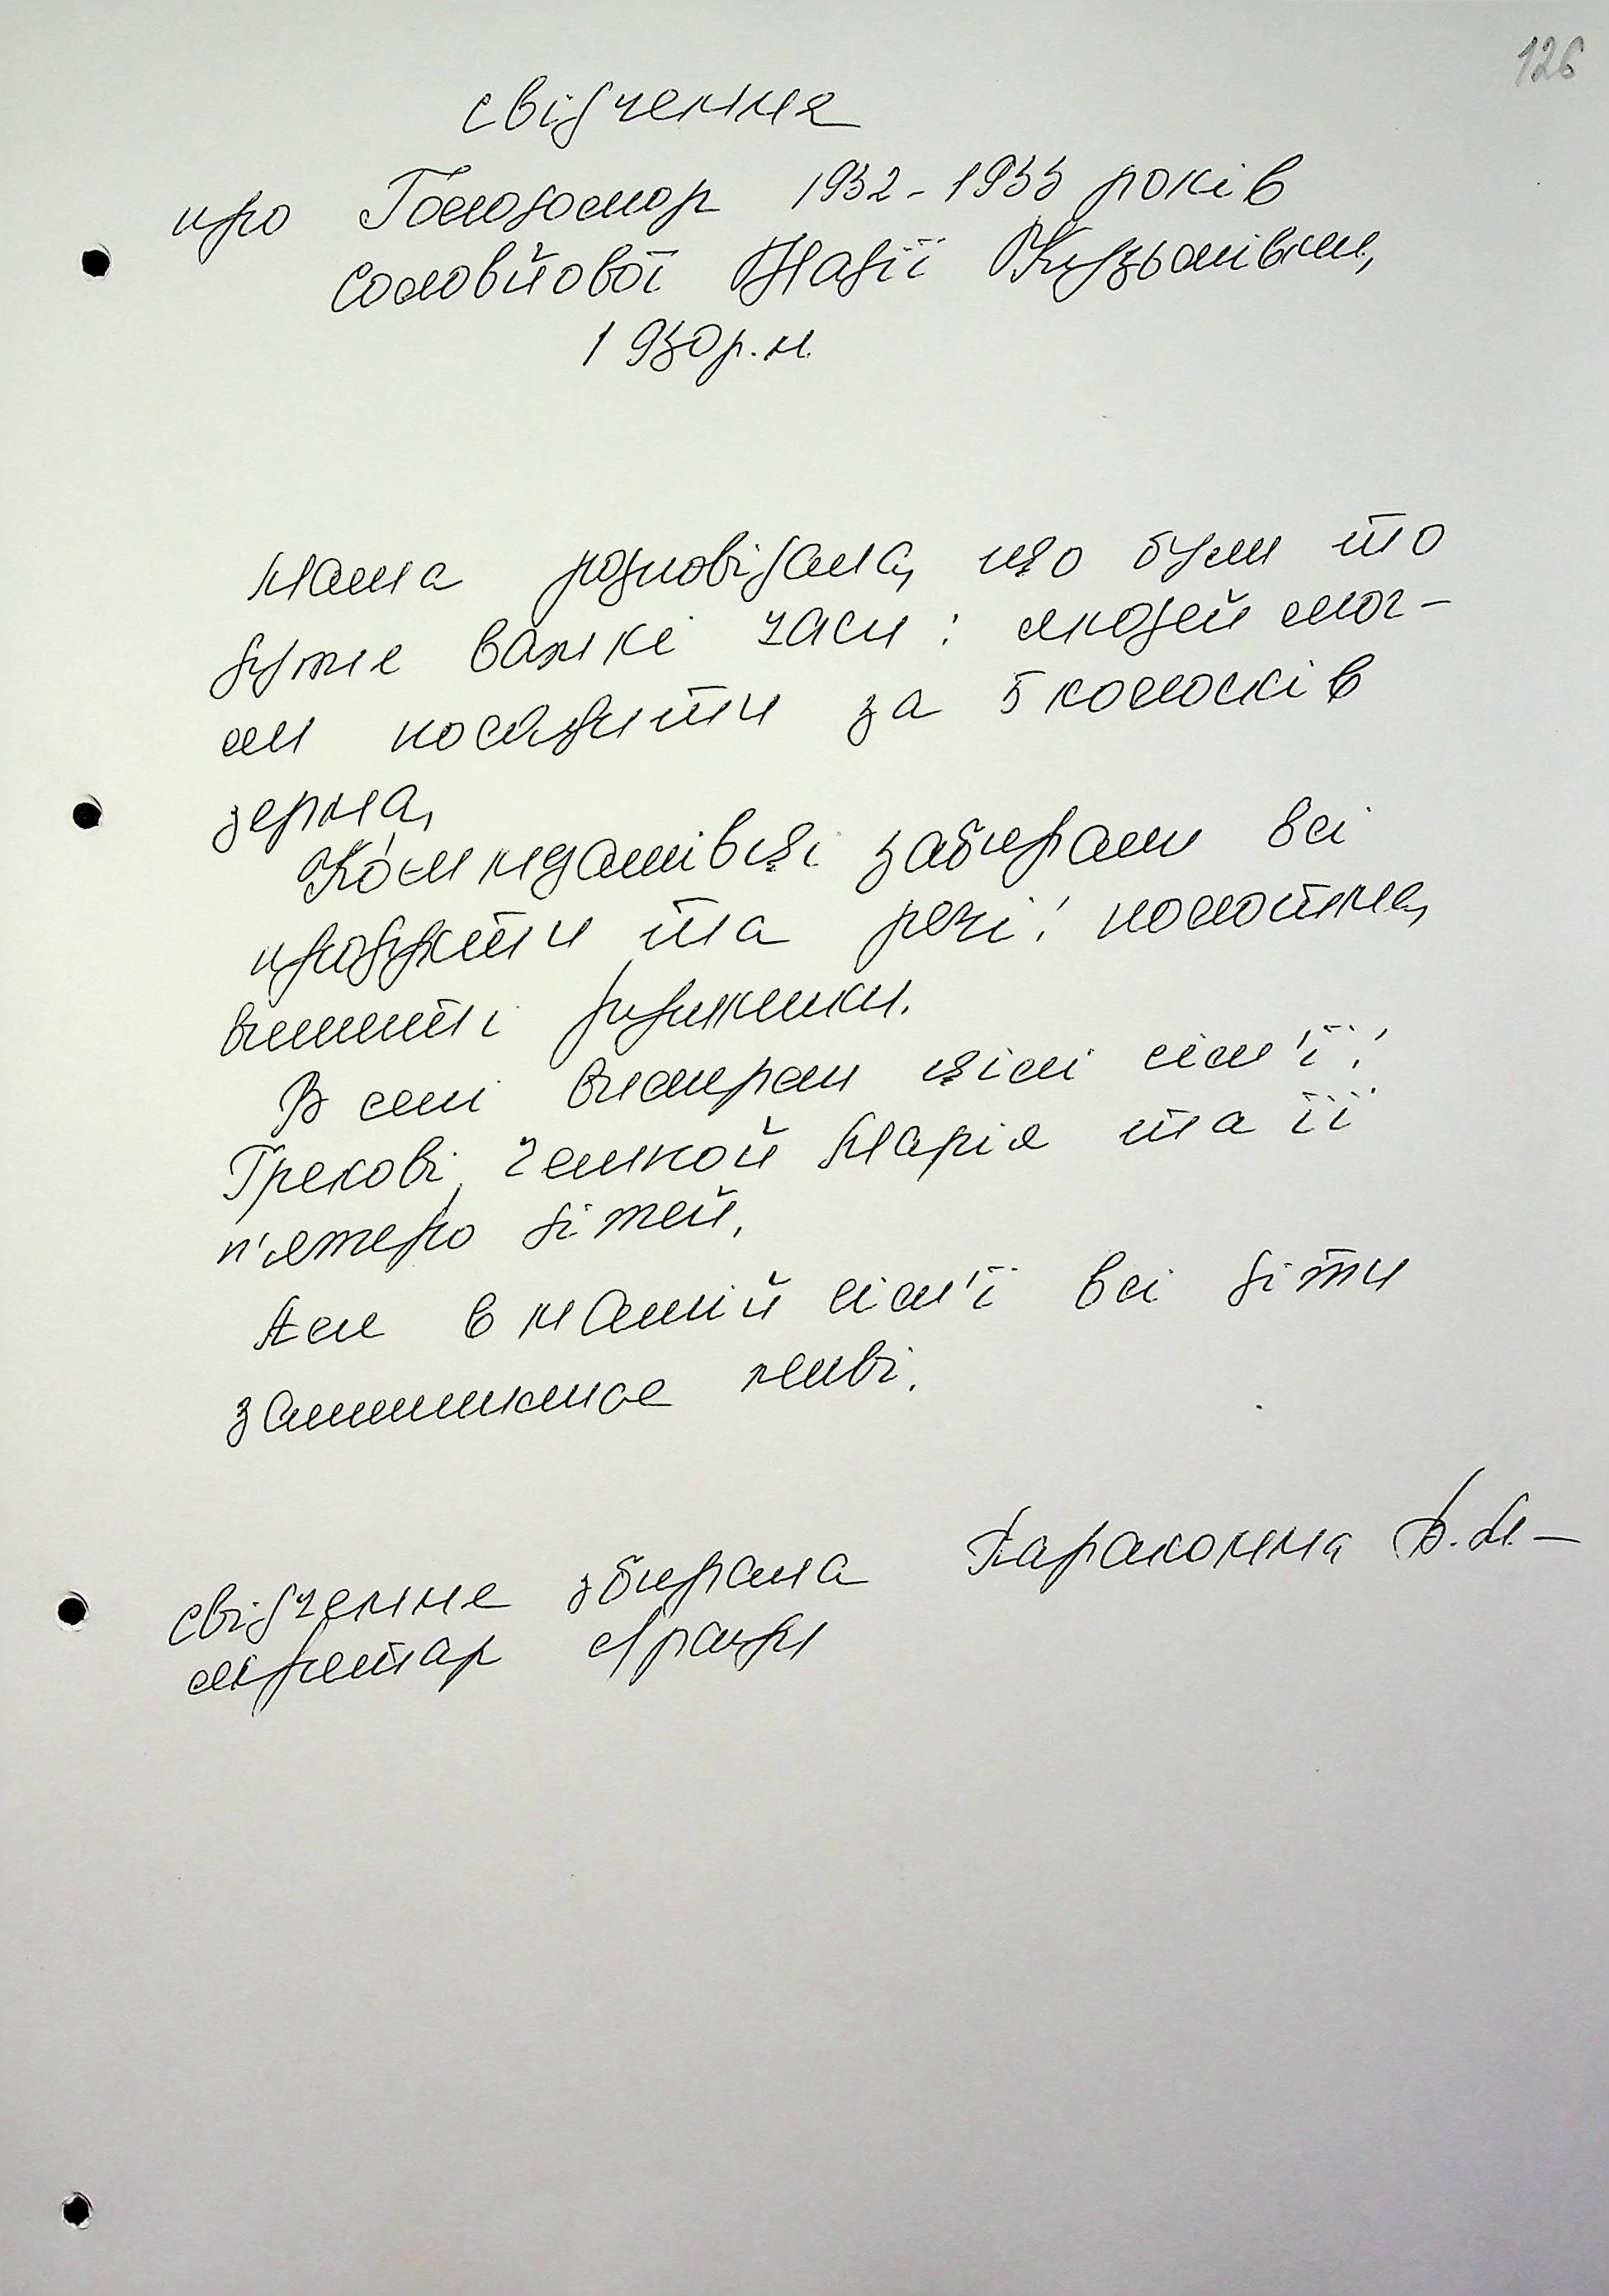 126
свідчення
про Голодомор 1932-1933 років
Соловйової Надії Кузьмівни,
1930р.н.
Мама розповідала, що були то
дуже важкі часи: людей мог-
ли посадити за 5 колосків
зерна.
Комнидамівці забирали всі
продукти та речі: полотна,
вишиті рушники.
В селі вимирали цілі сім'ї:
Грекові, Чепкой Марія та її
п'ятеро дітей.
Але в нашій сім'ї всі діти
залишилися живі.
свідчення збирала Караконна В.М.-
секретар с/ради